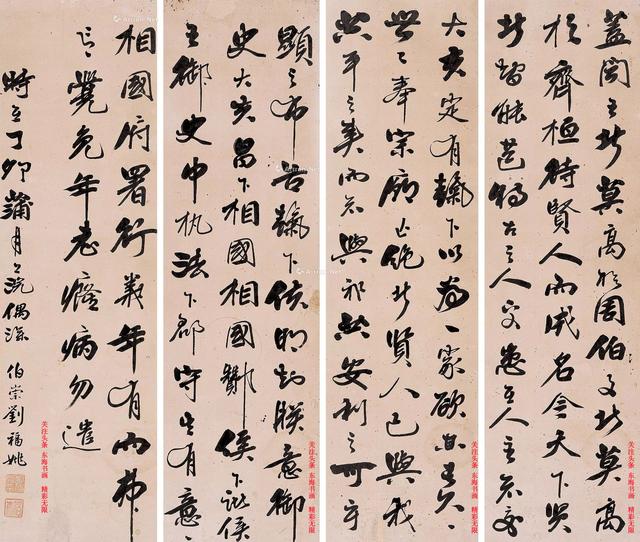 蓋聞王者莫高於周伯文者莫高
於齊桓待賢人而成名今天下賢
者智能豈特古之人乎患在人主不交
关注头条 东海书画 精彩无限
大夫定有天下以為一家欲其長久
世〻奉宗廟亡絕者賢人已與我
共平之矣而不與吾共安利之可乎
关注头条 东海书画 精彩无限
顯之布告天下使明知朕意御
史大夫昌下相國相國酇侯下諸侯
王御史中執法下郡守其有意
关注头条 东海书画 精彩无限
相國府署行義年有而弗
言覺免年老癃病勿遣
時在丁卯蒲月之浣偶臨 伯崇劉福姚
关注头条 东海书画 精彩无限